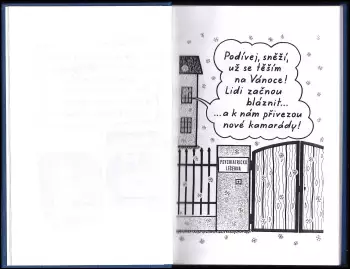 Podívej, sněží,
už se těším
na Vánoce!
Lidi začnou
bláznit...
...a k nám přivezou
nové kamarády!
PSYCHIATRICKÁ
LÉČEBNA